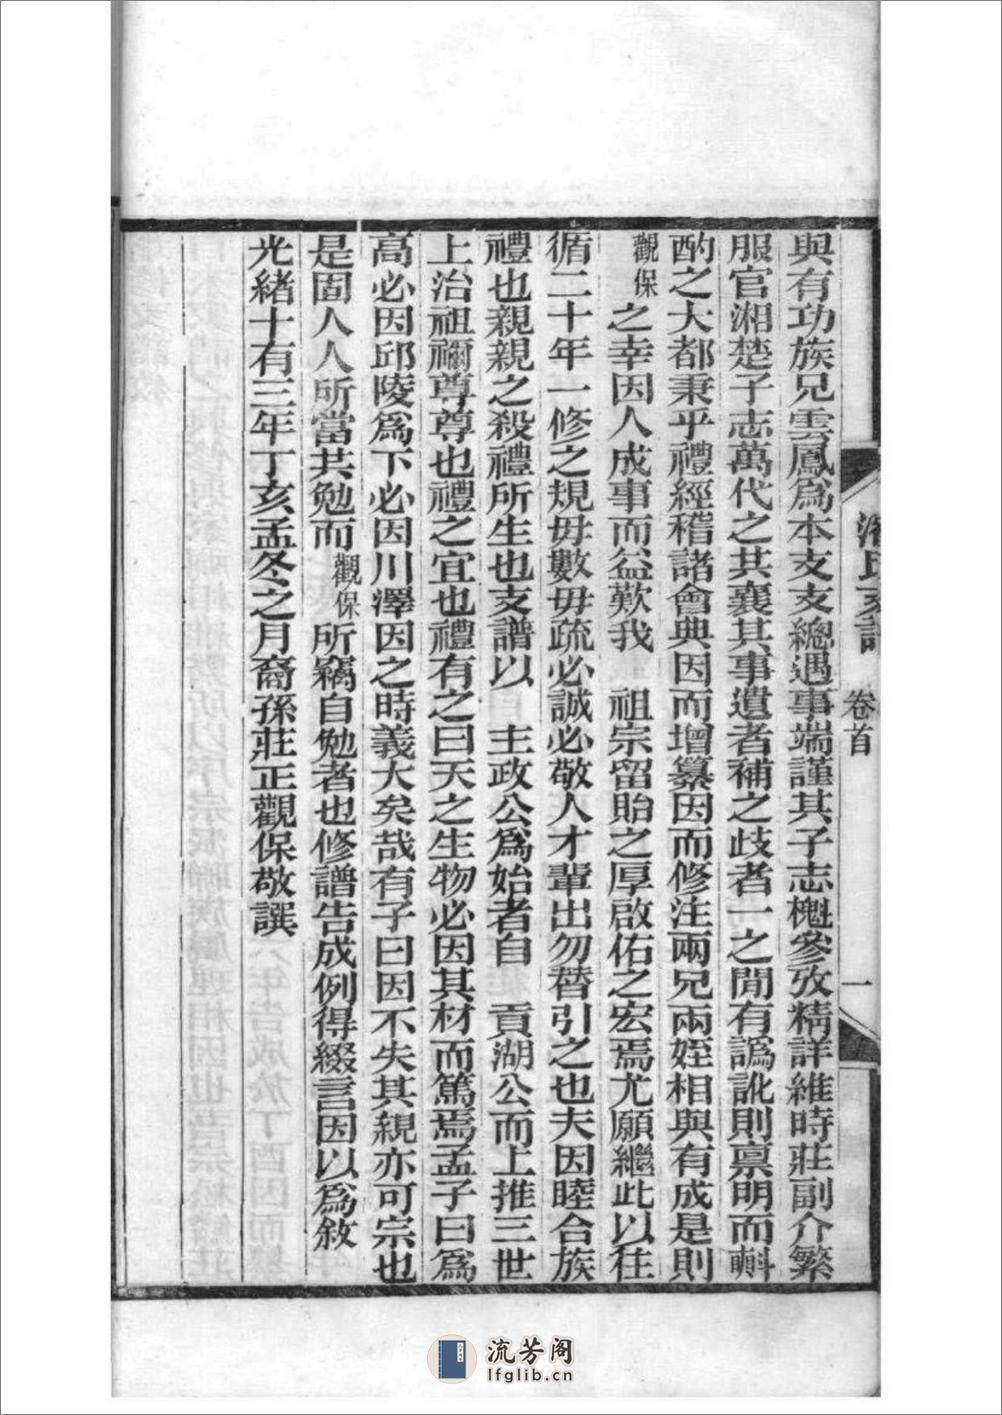 與有功族兄雲鳳爲本支支總遇事端謹其子志櫆參攷精詳維時莊副介繁
服官湘楚子志萬代之共襄其事遺者補之歧者一之閒有譌訛則禀明而斠
酌之大都秉乎禮經稽諸會典因而增纂因而修注兩兄兩姪相與有成是則
觀保之幸因人成事而益歎我　祖宗留貽之厚啟佑之宏焉尤願繼此以往
循二十年一修之規毋數毋疏必誠必敬人才輩出勿替引之也夫因睦合族
禮也親親之殺禮所生也支譜以　主政公爲始者自　貢湖公而上推三世
上治祖禰尊尊也禮之宜也禮有之曰天之生物必因其材而篤焉孟子曰爲
高必因邱陵爲下必因川澤因之時義大矣哉有子曰因不失其親亦可宗也
是固人人所當共勉而觀保所竊自勉者也修譜告成例得綴言因以爲敘
光緒十有三年丁亥孟冬之月裔孫莊正觀保敬譔
氏支譜　卷首　一
流芳阁
lfglib.cn